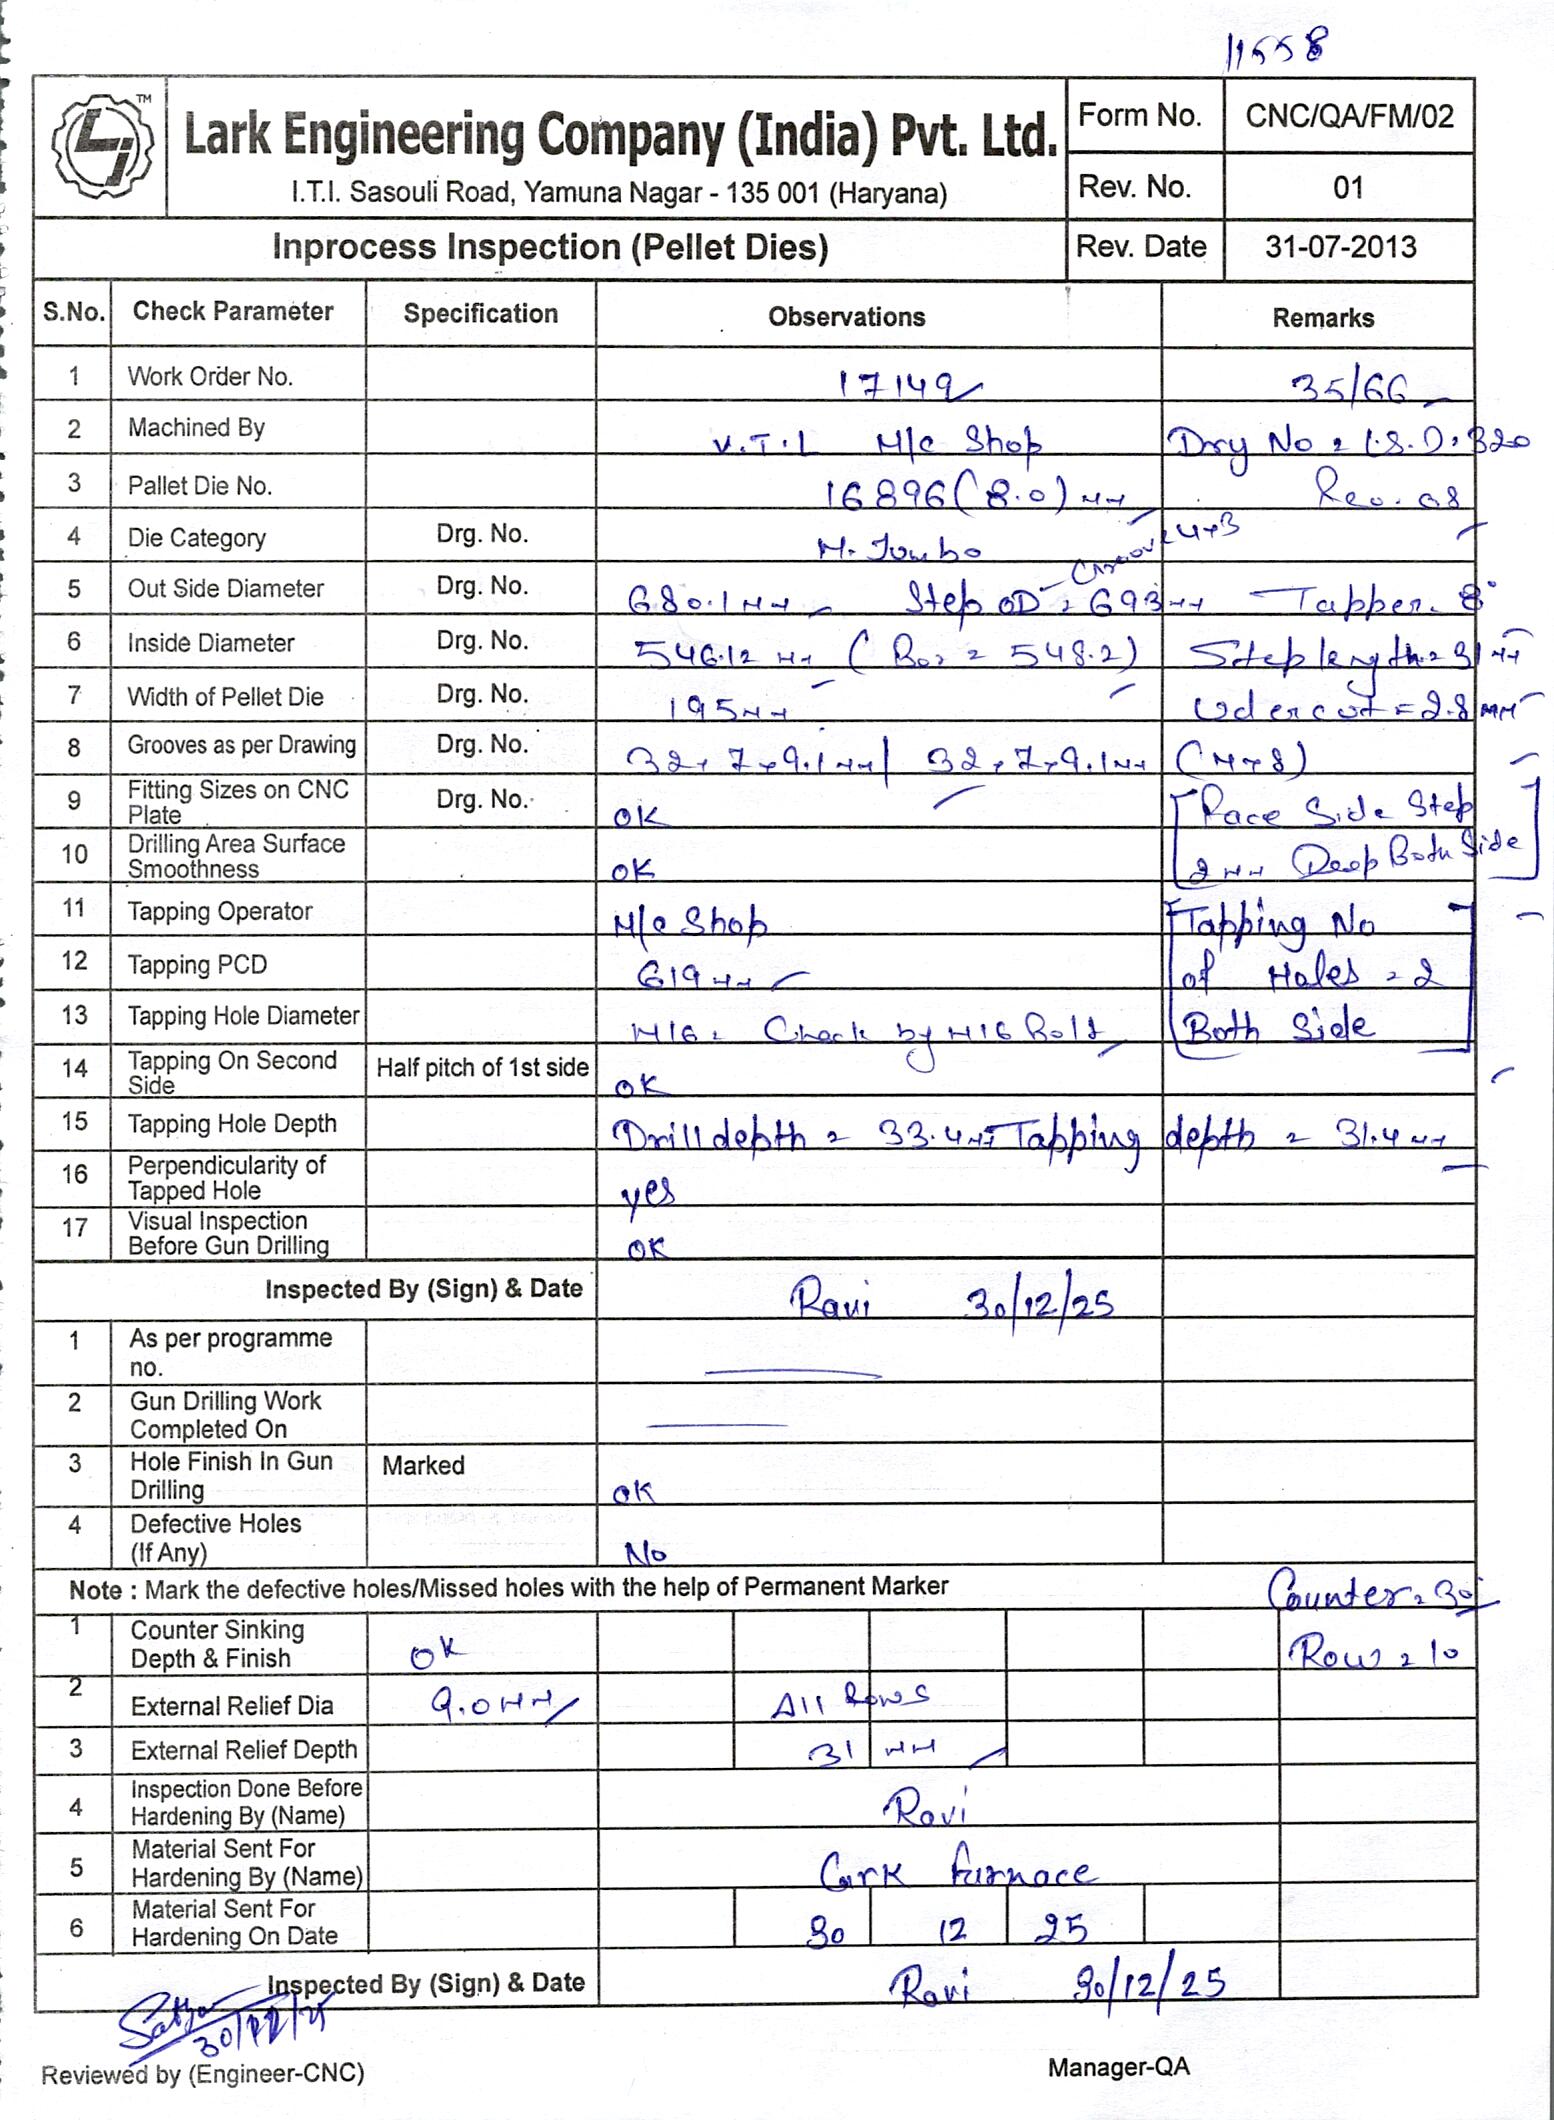 11558
TM
Lark Engineering Company (India) Pvt. Ltd.
I.T.I. Sasouli Road, Yamuna Nagar - 135 001 (Haryana)
Form No. CNC/QA/FM/02
Rev. No. 01
Inprocess Inspection (Pellet Dies) Rev. Date 31-07-2013
S.No. Check Parameter Specification Observations Remarks
1 Work Order No. 17149 35/66
2 Machined By V.T.L M/c Shop Drg No = L.S.D. 320
3 Pallet Die No. 16896 (8.0) MM Rev. 08
4 Die Category Drg. No. M. Jumbo Groove 4x3
5 Out Side Diameter Drg. No. 680.1 MM Step OD = 693 MM Tapper. 8°
6 Inside Diameter Drg. No. 546.12 MM ( Bor = 548.2) Step length = 31 MM
7 Width of Pellet Die Drg. No. 195 MM Udercut = 2.8 MM
8 Grooves as per Drawing Drg. No. 32 x 7 x 9.1 MM / 32 x 7 x 9.1 MM (M x 8)
9 Fitting Sizes on CNC Plate Drg. No. OK [Face Side Step
10 Drilling Area Surface Smoothness OK 2 MM Deep Both Side]
11 Tapping Operator M/c Shop [Tapping No
12 Tapping PCD 619 MM of Holes = 2
13 Tapping Hole Diameter M16 = Check by M16 Bolt Both Side]
14 Tapping On Second Side Half pitch of 1st side OK
15 Tapping Hole Depth Drill depth = 33.4 MM Tapping depth = 31.4 MM
16 Perpendicularity of Tapped Hole yes
17 Visual Inspection Before Gun Drilling OK
Inspected By (Sign) & Date Ravi 30/12/25
1 As per programme no.
2 Gun Drilling Work Completed On
3 Hole Finish In Gun Drilling Marked OK
4 Defective Holes (If Any) No
Note : Mark the defective holes/Missed holes with the help of Permanent Marker Counter = 30°
1 Counter Sinking Depth & Finish OK Row = 10
2 External Relief Dia 9.0 MM All Rows
3 External Relief Depth 31 MM
4 Inspection Done Before Hardening By (Name) Ravi
5 Material Sent For Hardening By (Name) Lark furnace
6 Material Sent For Hardening On Date 30 12 25
Inspected By (Sign) & Date Ravi 30/12/25
30/12/25
Reviewed by (Engineer-CNC) Manager-QA